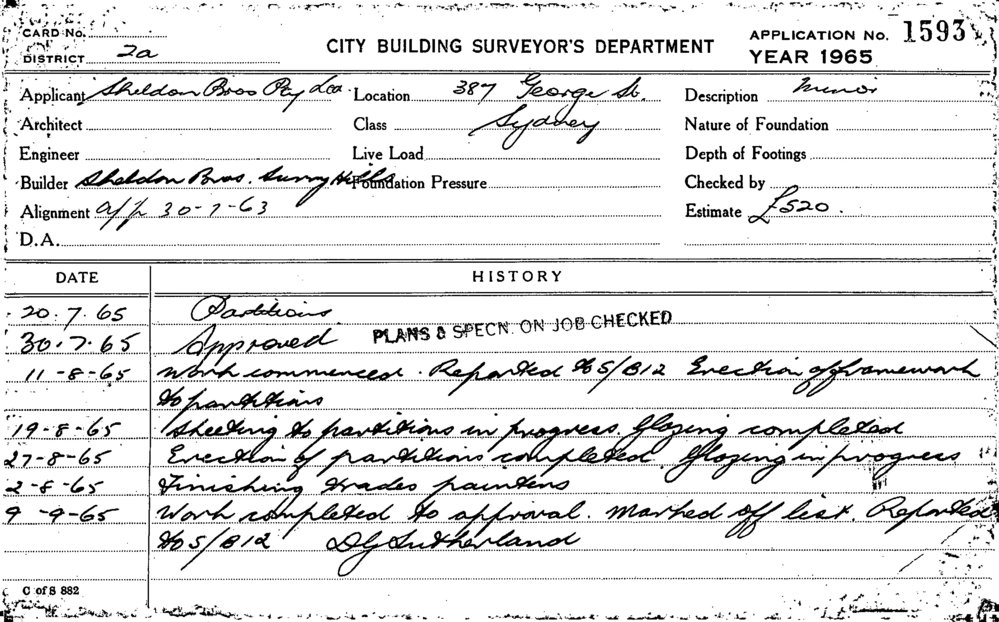 CARD No.
DISTRICT 2a
CITY BUILDING SURVEYOR'S DEPARTMENT
APPLICATION No. 1593
YEAR 1965
Applicant Sheldon Bros Pty Ltd Location 387 George St. Description Minor
Architect Class Sydney Nature of Foundation
Engineer Live Load Depth of Footings
Builder Sheldon Bros. Surry Hills Foundation Pressure Checked by
Alignment a/p 30-7-63 Estimate £520.
D.A.
DATE HISTORY
20.7.65 Partitions
30.7.65 Approved PLANS & SPECN. ON JOB CHECKED
11-8-65 Work commenced. Reported to S/B12 Erection of framework
to partitions
19-8-65 Sheeting to partitions in progress. Glazing completed
27-8-65 Erection of partitions completed. Glazing in progress
2-8-65 Finishing trades painters
9-9-65 Work completed to approval. Marked off list. Reported
to S/B12 DG Sutherland
C of S 882